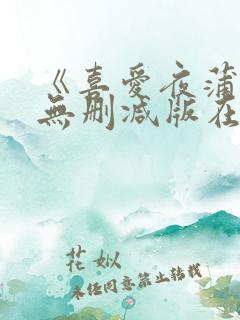 《喜爱夜蒲
無删减版在
花姒
未经同意禁止转载